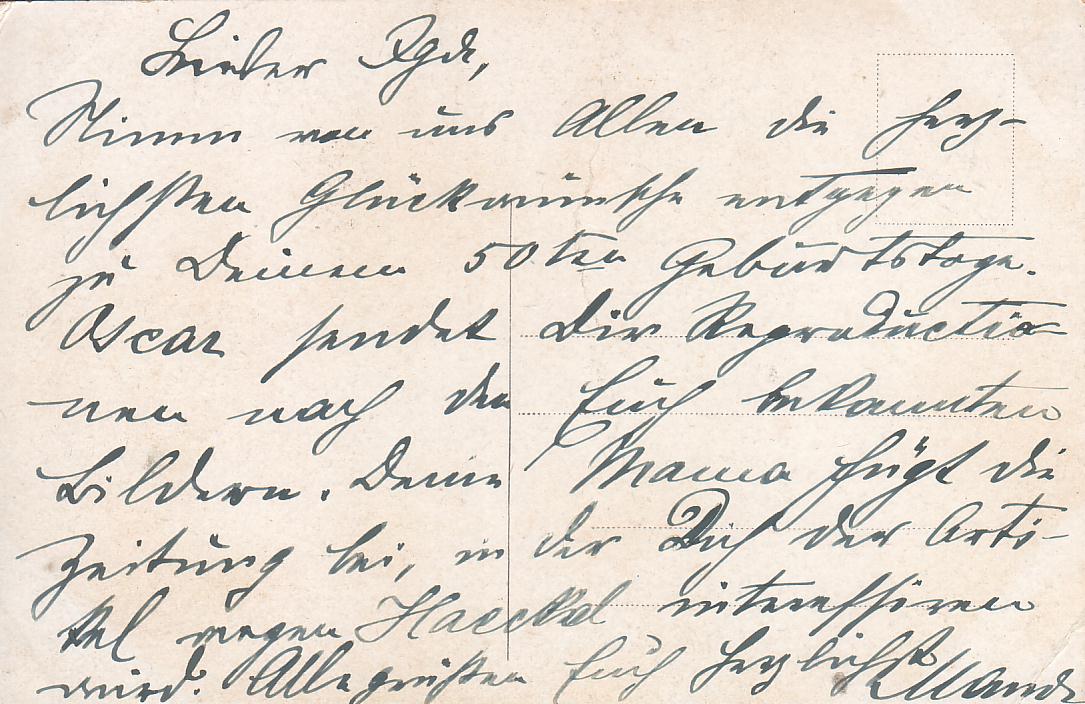 Lieber
Nimm von uns Allen die herz-
lichsten Glückwünsche entgegen
zu Deinem 50ten Geburtstage.
Oscar sendet Dir Reproductio-
nen nach den Euch bekannten
Bildern. Deine Mama fügt die
Zeitung bei, in der Dich der Arti-
kel wegen Haeckel interessiren
wird. Alle grüßen Euch herzlichst